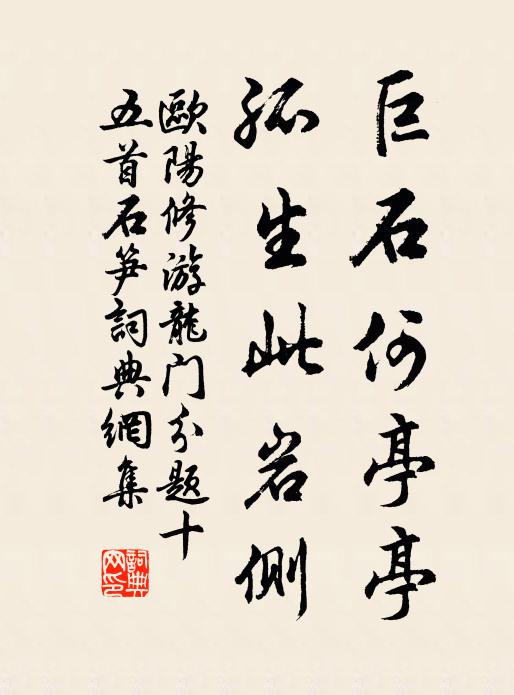 巨石何亭亭
孤生此岩側
歐陽修游龍门分题十
五首石笋詞典網集
詞典
网印